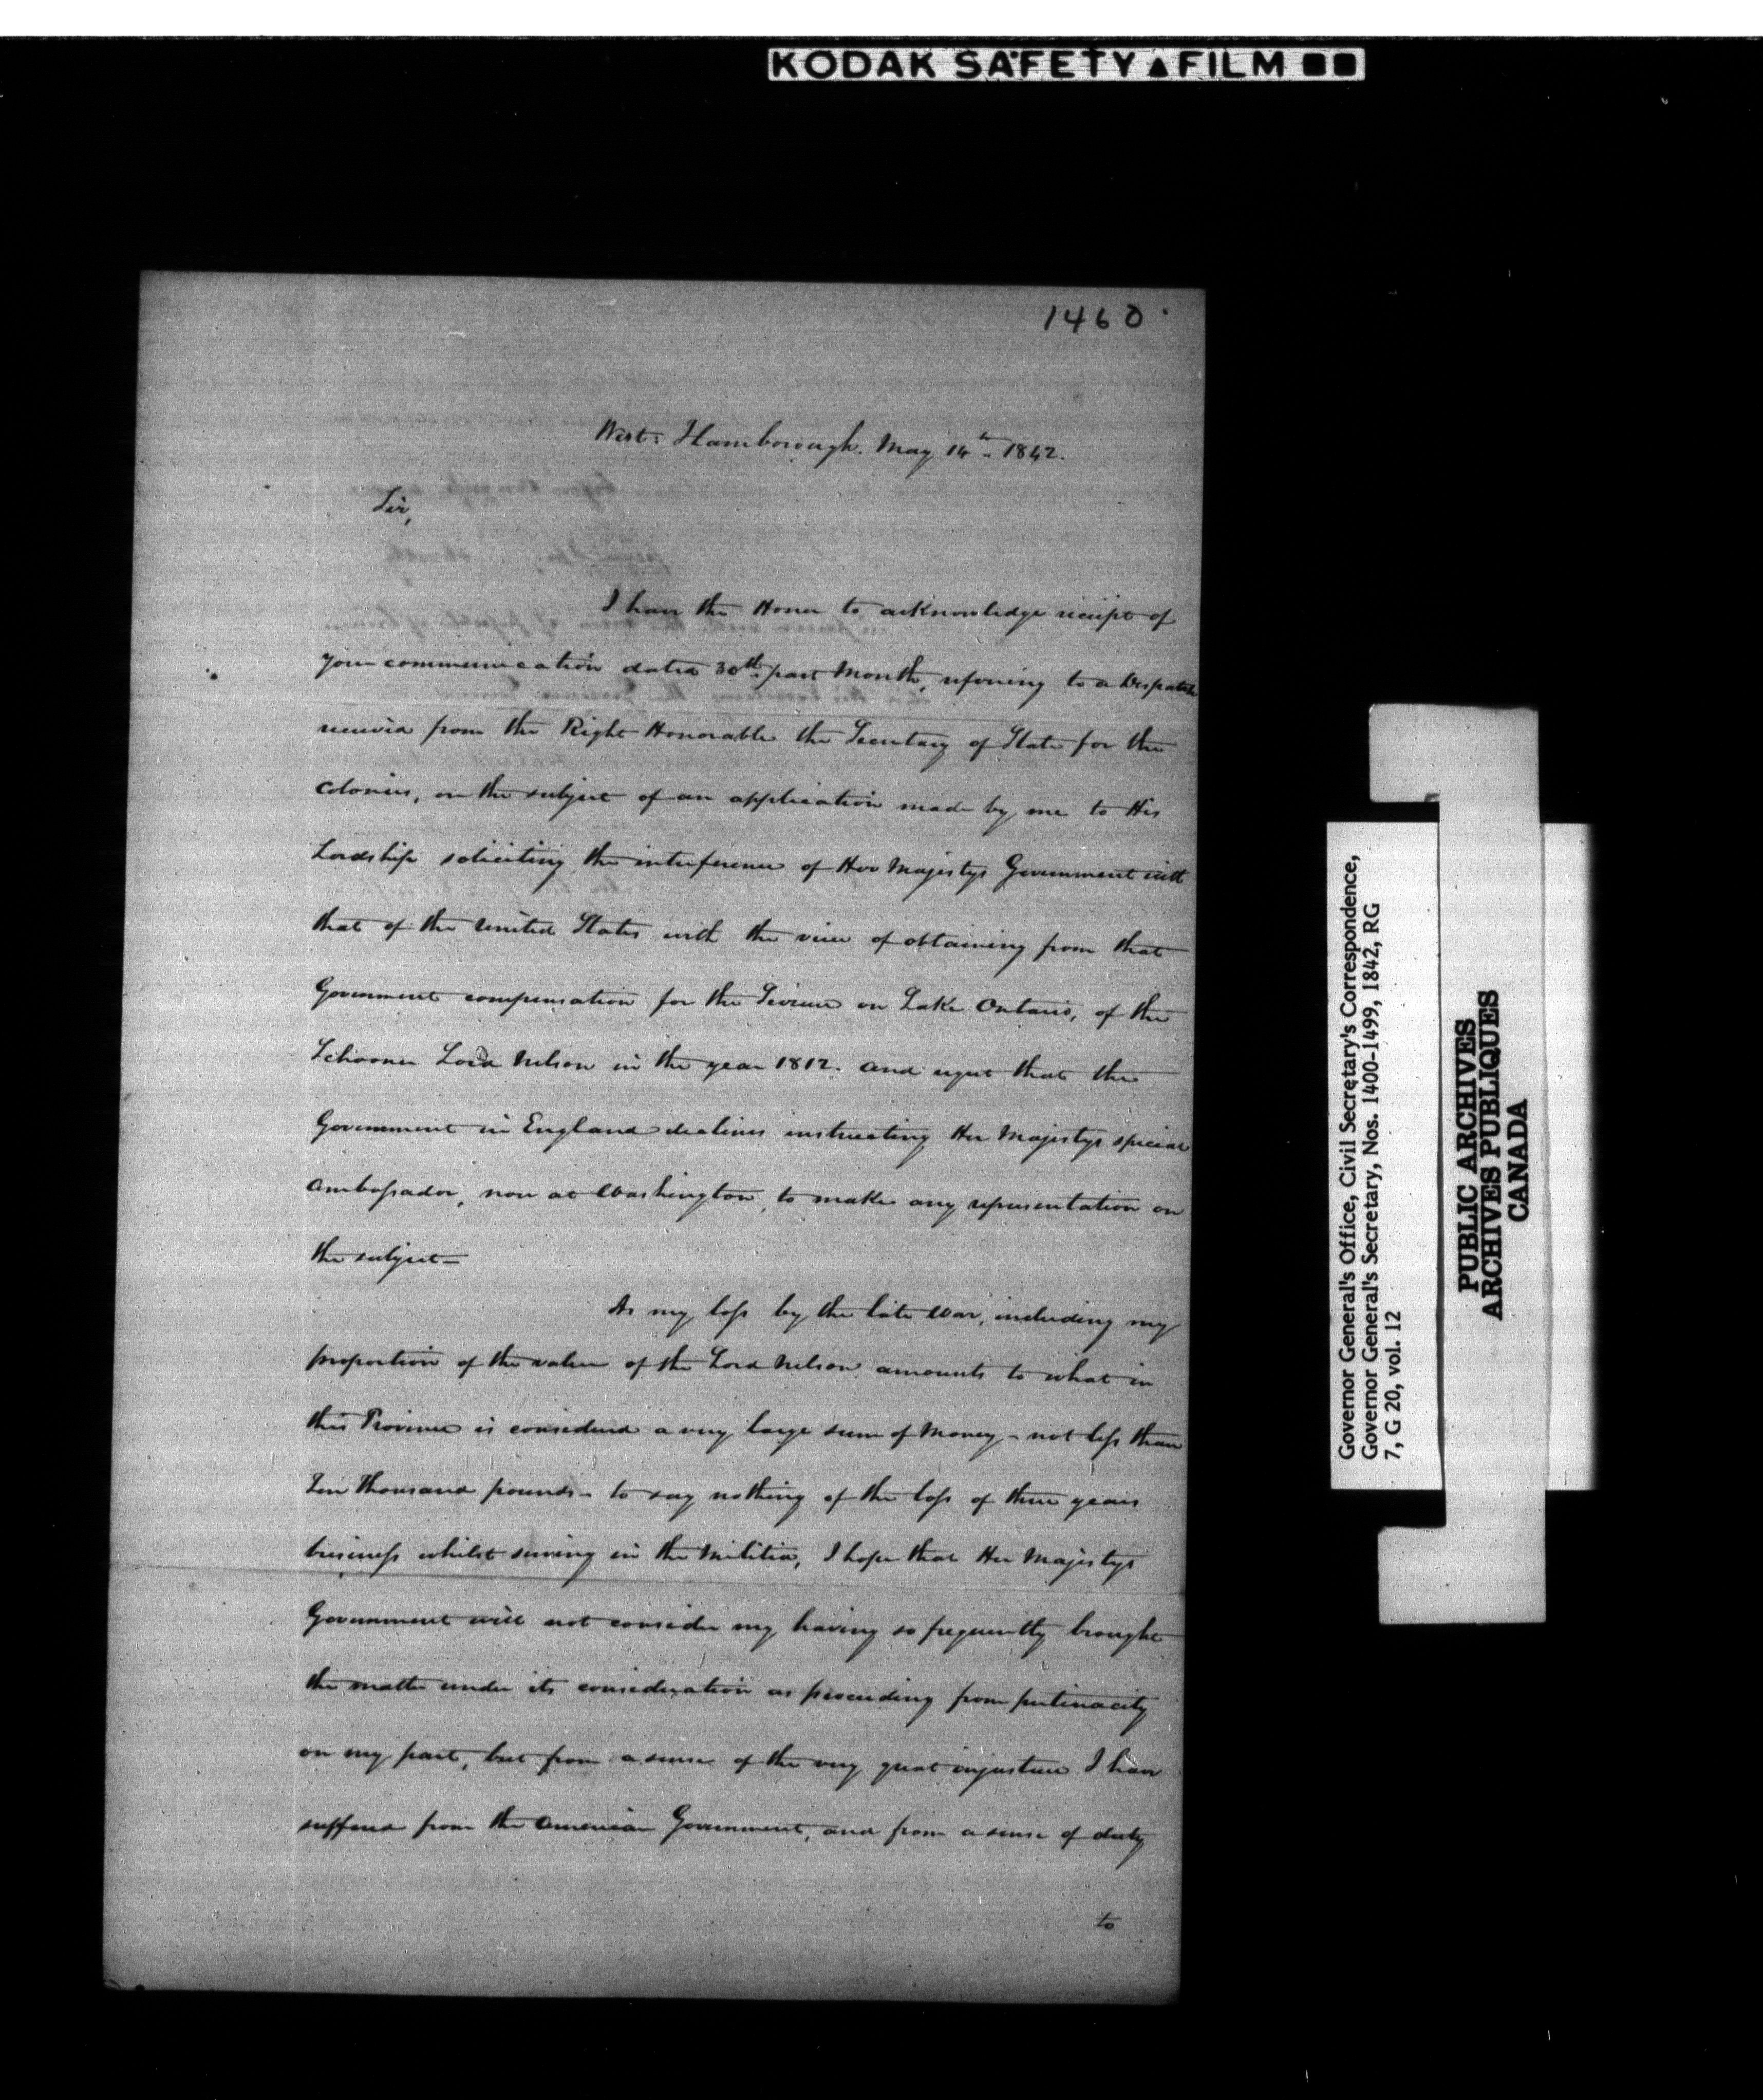 KODAK SAFETY ▲ FILM ■■
1460
West: Flamborough. May 14th. 1842.
Sir,
I have the Honor to acknowledge receipt of
your communication dated 30th. past Month, refering to a Despatch
received from the Right Honorable the Secretary of State for the
Colonies, on the subject of an application made by me to His
Lordship soliciting the interference of Her Majestys Government with
that of the United States with the view of obtaining from that
Government compensation for the Seizure on Lake Ontario, of the
Schooner Lord Nelson in the year 1812. and regret that the
Government in England declines instructing Her Majestys special
Ambassador, now at Washington, to make any representation on
the subject—
As my loss by the late War, including my
proportion of the value of the Lord Nelson amounts to what in
this Province is considered a very large sum of Money – not less than
Ten thousand pounds – to say nothing of the loss of three years
business whilst serving in the Militia, I hope that Her Majestys
Government will not consider my having so frequently brought
the matter under its consideration as proceeding from pertinacity
on my part, but from a sense of the very great injustice I have
suffered from the American Government, and from a sense of duty
to
Governor General's Office, Civil Secretary's Correspondence,
Governor General's Secretary, Nos. 1400-1499, 1842, RG
7, G 20, vol. 12
PUBLIC ARCHIVES
ARCHIVES PUBLIQUES
CANADA